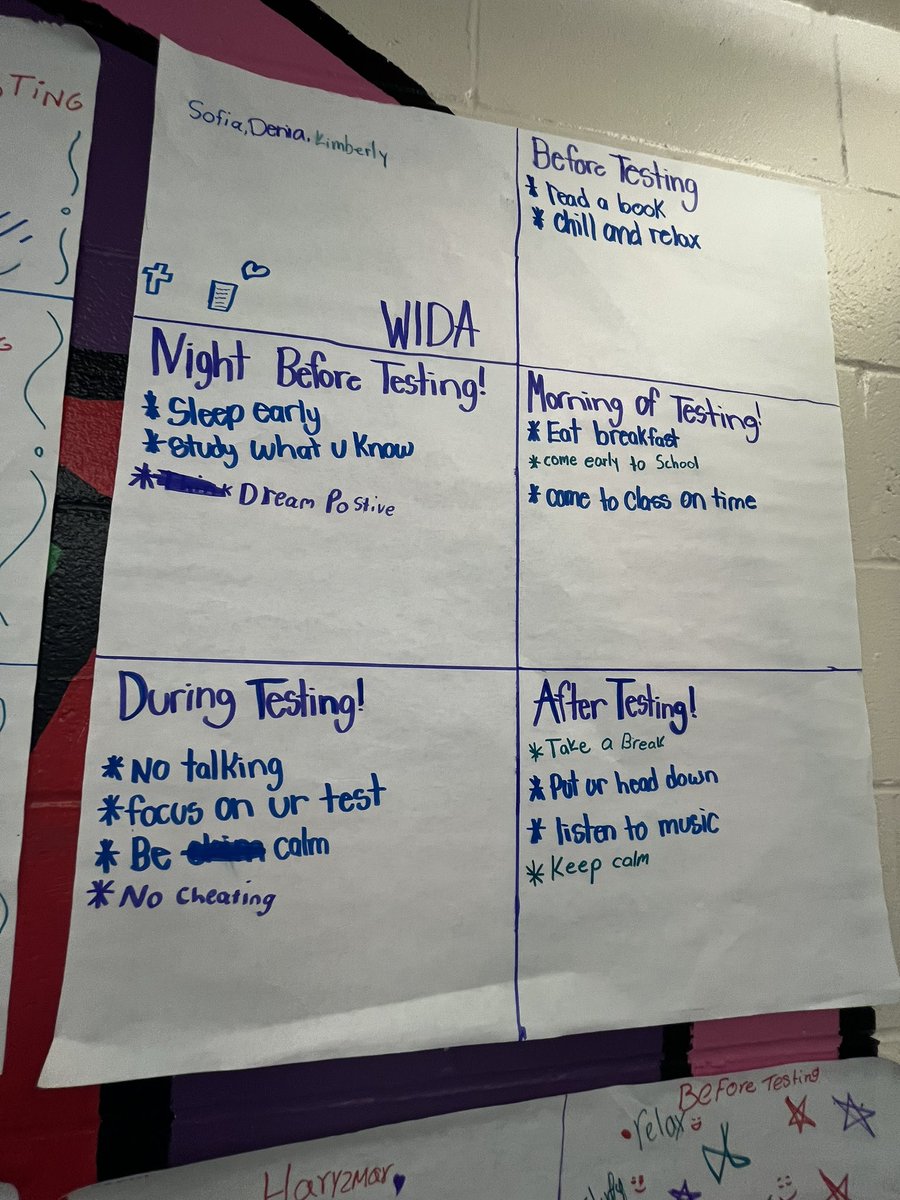 TING
Sofia, Denia, Kimberly
WIDA
Before Testing
* read a book
* chill and relax
Night Before Testing!
* Sleep early
* study what u know
* Dream Postive
Morning of Testing!
* Eat breakfast
* come early to School
* come to class on time
During Testing!
* No talking
* focus on ur test
* Be calm
* No cheating
After Testing!
* Take a Break
* Put ur head down
* listen to music
* Keep calm
Haryzmar
Before Testing
• relax